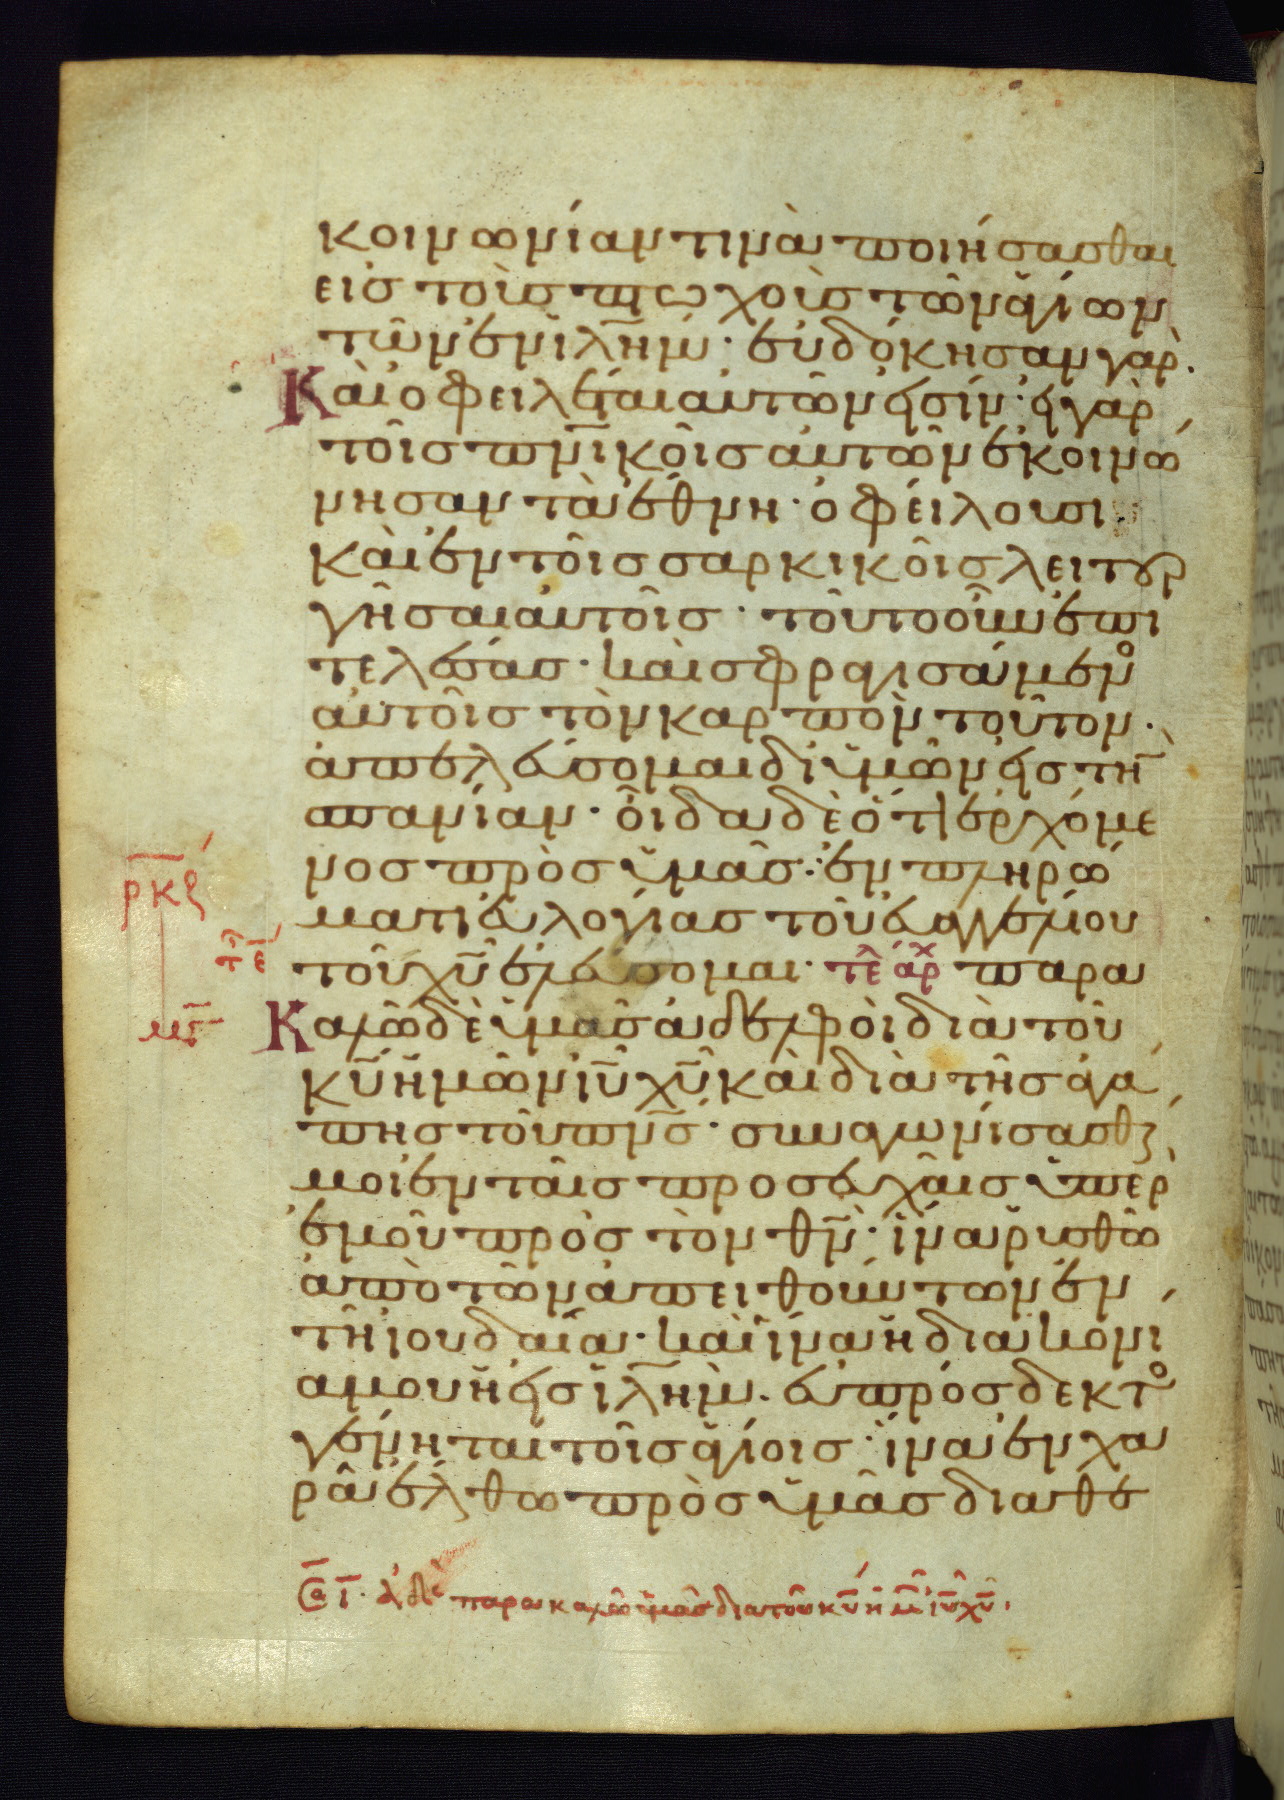 κοινωνίαν τινὰ ποιήσασθαι
εἰς τοὺς πτωχοὺς τῶν ἁγίων
τῶν ἐν ἰλῆμ· εὐδόκησαν γὰρ·
Καὶ ὀφειλέται αὐτῶν εἰσίν· εἰ γὰρ
τοῖς πνικοῖς αὐτῶν ἐκοινώ
νησαν τὰ ἔθνη· ὀφείλουσι
καὶ ἐν τοῖς σαρκικοῖς λειτουρ
γῆσαι αὐτοῖς· τοῦτο οὖν ἐπι
τελέσας· καὶ σφραγισάμενο
αὐτοῖς τὸν καρπὸν τοῦτον·
ἀπελεύσομαι δι' ὑμῶν εἰς τὴ
σπανίαν· οἶδα δὲ ὅτι ἐρχόμε
νος πρὸς ὑμᾶς· ἐν πληρώ
ματι εὐλογίας τοῦ εὐαγγελίου
ρκϛ
τε
τοῦ χῦ ἐλεύσομαι· τε αρχ παρα
μγ
Καλῶ δὲ ὑμᾶς ἀδελφοὶ διὰ τοῦ
κῦ ἡμῶν ἰῦ χῦ καὶ διὰ τῆς ἀγά
πης τοῦ πνς· συναγωνίσασθαι
μοι ἐν ταῖς προσευχαῖς ὑπὲρ
ἐμοῦ πρὸς τὸν θν· ἵνα ῥυσθῶ
ἀπὸ τῶν ἀπειθούντων ἐν
τῇ ἰουδαία· καὶ ἵνα ἡ διακονί
α μου ἡ εἰς ἰλῆμ· εὐπρόσδεκτο
γένηται τοῖς ἁγίοις· ἵνα ἐν χα
ρᾷ ἔλθω πρὸς ὑμᾶς διὰ θε
ι· ἀδε παρακαλῶ ὑμᾶς διὰ τοῦ κῦ ἡμ ἰῦ χῦ